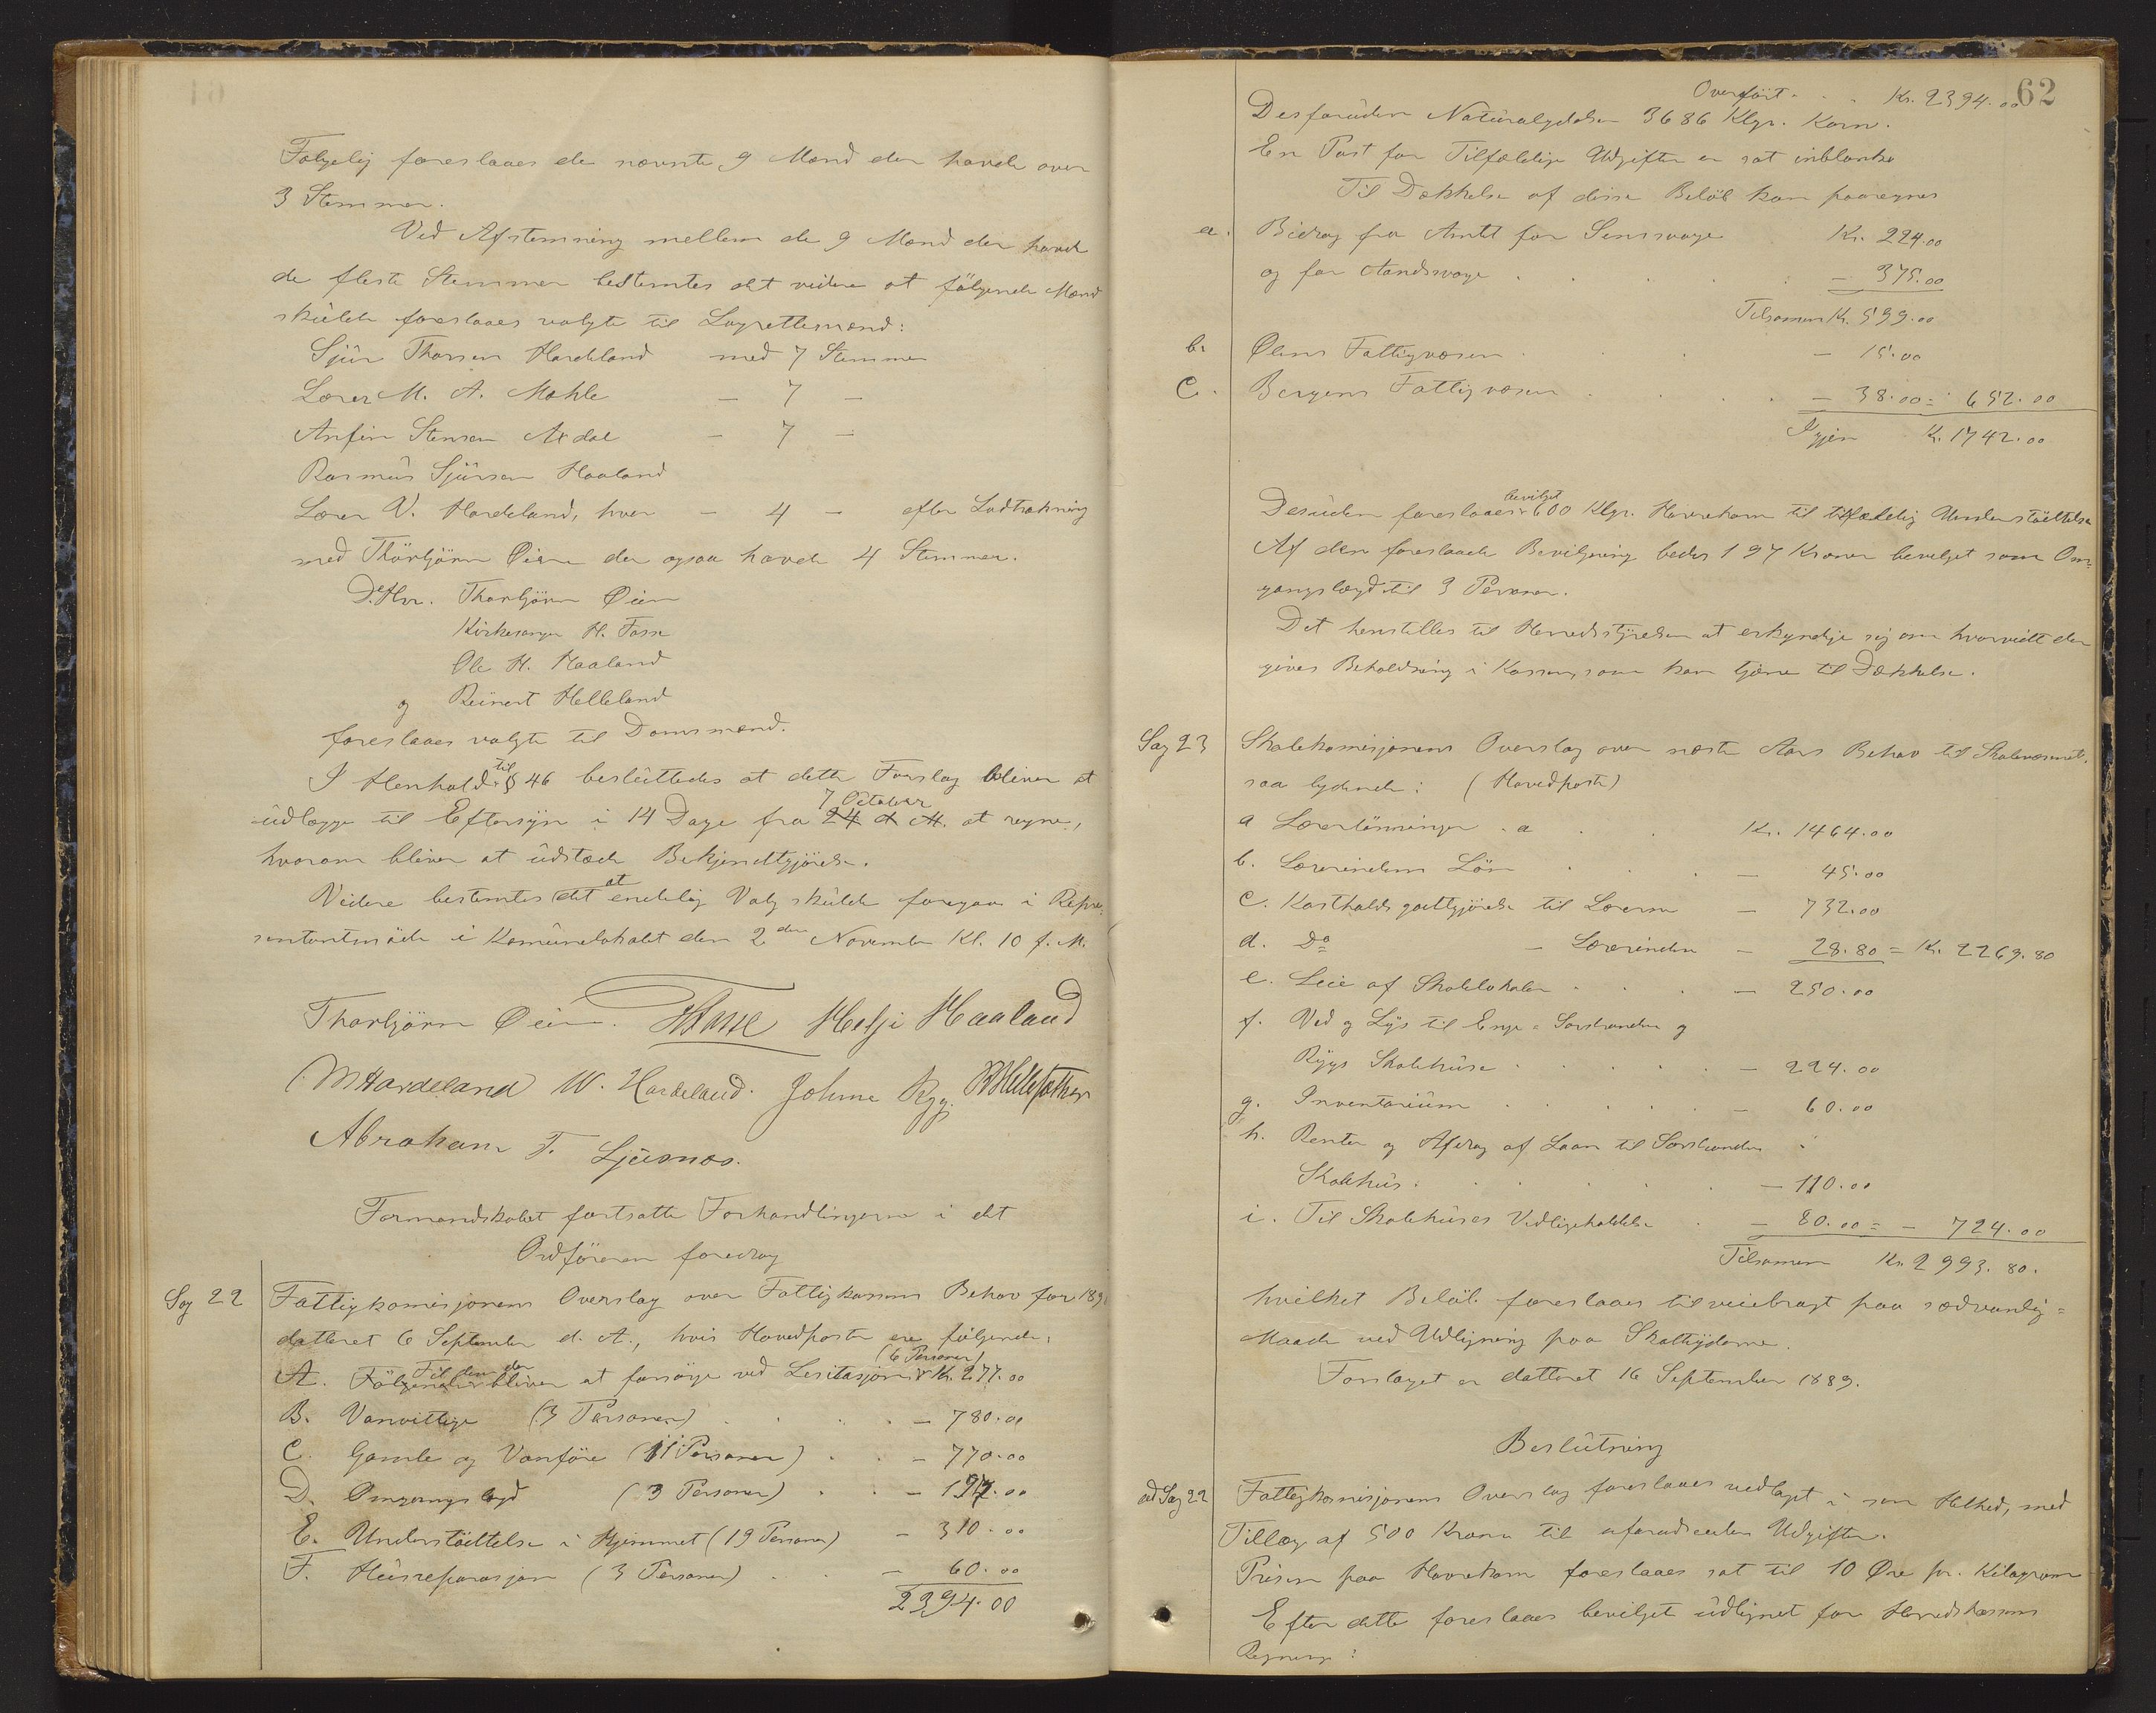 Følgelig foreslaaes de nævnte 9 Mænd der havde over
3 Stemmer.
Ved Afstemning mellem de 9 Mænd der havde
de fleste Stemmer bestemtes det videre at følgende Mænd
skulde foreslaaes valgte til Lagrettemænd:
Sjur Thorsen Hardeland med 7 Stemmer
Lærer M. A. Mæhle — 7 —
Anfin Stensen Axdal — 7 —
Rasmus Sjursen Haaland
Lærer V. Hardeland, hver — 4 — efter Lodtrækning
med Thorbjørn Øien der ogsaa havde 4 Stemmer.
D'Hrr. Thorbjørn Øien
Kirkesanger H. Fosse
Ole H. Haaland
og Reinert Helleland
foreslaaes valgte til Domsmænd.
I Henhold til § 46 besluttedes at dette Forslag bliver at
udlægge til Eftersyn i 14 Dage fra 24 d. M. 7 October at regne,
hvorom bliver at udstæde Bekjendtgjørelse.
Videre bestemtes det at endelig Valg skulde foregaa i Repræ-
sentantmøde i Komunelokalet den 2den November Kl. 10 f. M.
Thorbjørn Øien. HFosse Helje Haaland
M Hardeland W. Hardeland. Johne Ryg.
Abraham T. Ljusnes.
Formandskabet fortsatte Forhandlingerne i det
Ordføreren foredrog
Sag 22 Fattigkomisjonens Overslag over Fattigkassens Behov for 189
datteret 6 September d. A., hvis Hovedposter ere følgende:
A. Følgende Til dem der bliver at forsørge ved Lesitasjon (6 Personer) Kr. 277.00
B. Vanvittige (3 Personer) — 780.00
C. Gamle og Vanføre (11 Personer) — 770.00
D. Omgangslægd (3 Personer) — 197.00
E. Understøttelse i Hjemmet (19 Personer) — 310.00
F. Husreparasjon (3 Personer) — 60.00
2394.00
62
Overført Kr. 2394.00
Desforuden Naturalydelsen 3686 Klgr. Korn.
En Post for Tilfældige Udgifter er sat inblanko
Til Dækkelse af disse Beløb kan paaregnes
a. Bidrag fra Amtet for Sinssvage Kr. 224.00
og for Aandsvage — 375.00
Tilsamen Kr. 599.00
b. Ølens Fattigvæsen — 15.00
C. Bergens Fattigvæsen — 38.00 = 652.00
Igjen K. 1742.00
Desuden foreslaaes bevilget 600 Klgr. Havrekorn til tilfældig Understøttelse
Af den foreslaaede Bevilgning bedes 197 Kroner bevilget som Om-
gangslægd til 3 Personer.
Det henstilles til Herredsstyrelsen at erkyndige sig om hvorvidt der
gives Beholdning i Kassen, som kan tjene til Dækkelse.
Sag 23 Skolekomisjonens Overslag over næste Aars Behov til Skolevæsenet.
saa lydende: (Hovedposter)
a Lærerlønninger a Kr. 1464.00
b. Lærerindens Løn — 45.00
C. Kostholdsgodtgjørelse til Lærerne — 732.00
d. Do — Lærerinden — 28.80 = Kr. 2269.80
e. Leie af Skolelokaler — 250.00
f. Ved og Lys til Enge- Sørstranden og
Rygs Skolehuse — 224.00
g. Inventarium — 60.00
h. Renter og Afdrag af Laan til Sørstranden
Skolehus — 110.00
i. Til Skolehuses Vedligeholdelse — 80.00 = — 724.00
Tilsamen Kr. 2993.80.
hvilket Beløb foreslaaes tilveiebragt paa sædvanlig-
Maade ved Udligning paa Skatteyderne.
Forslaget er datteret 16 September 1889.
Beslutning
ad Sag 22 Fattigkomisjonens Overslag foreslaaes vedtaget i sin Helhed, med
Tillæg af 500 Kroner til uforudseede Udgifter.
Prisen paa Havrekorn foreslaaes sat til 10 Øre pr. Kilogram
Efter dette foreslaaes bevilget udlignet for Herredskassens
Regning: